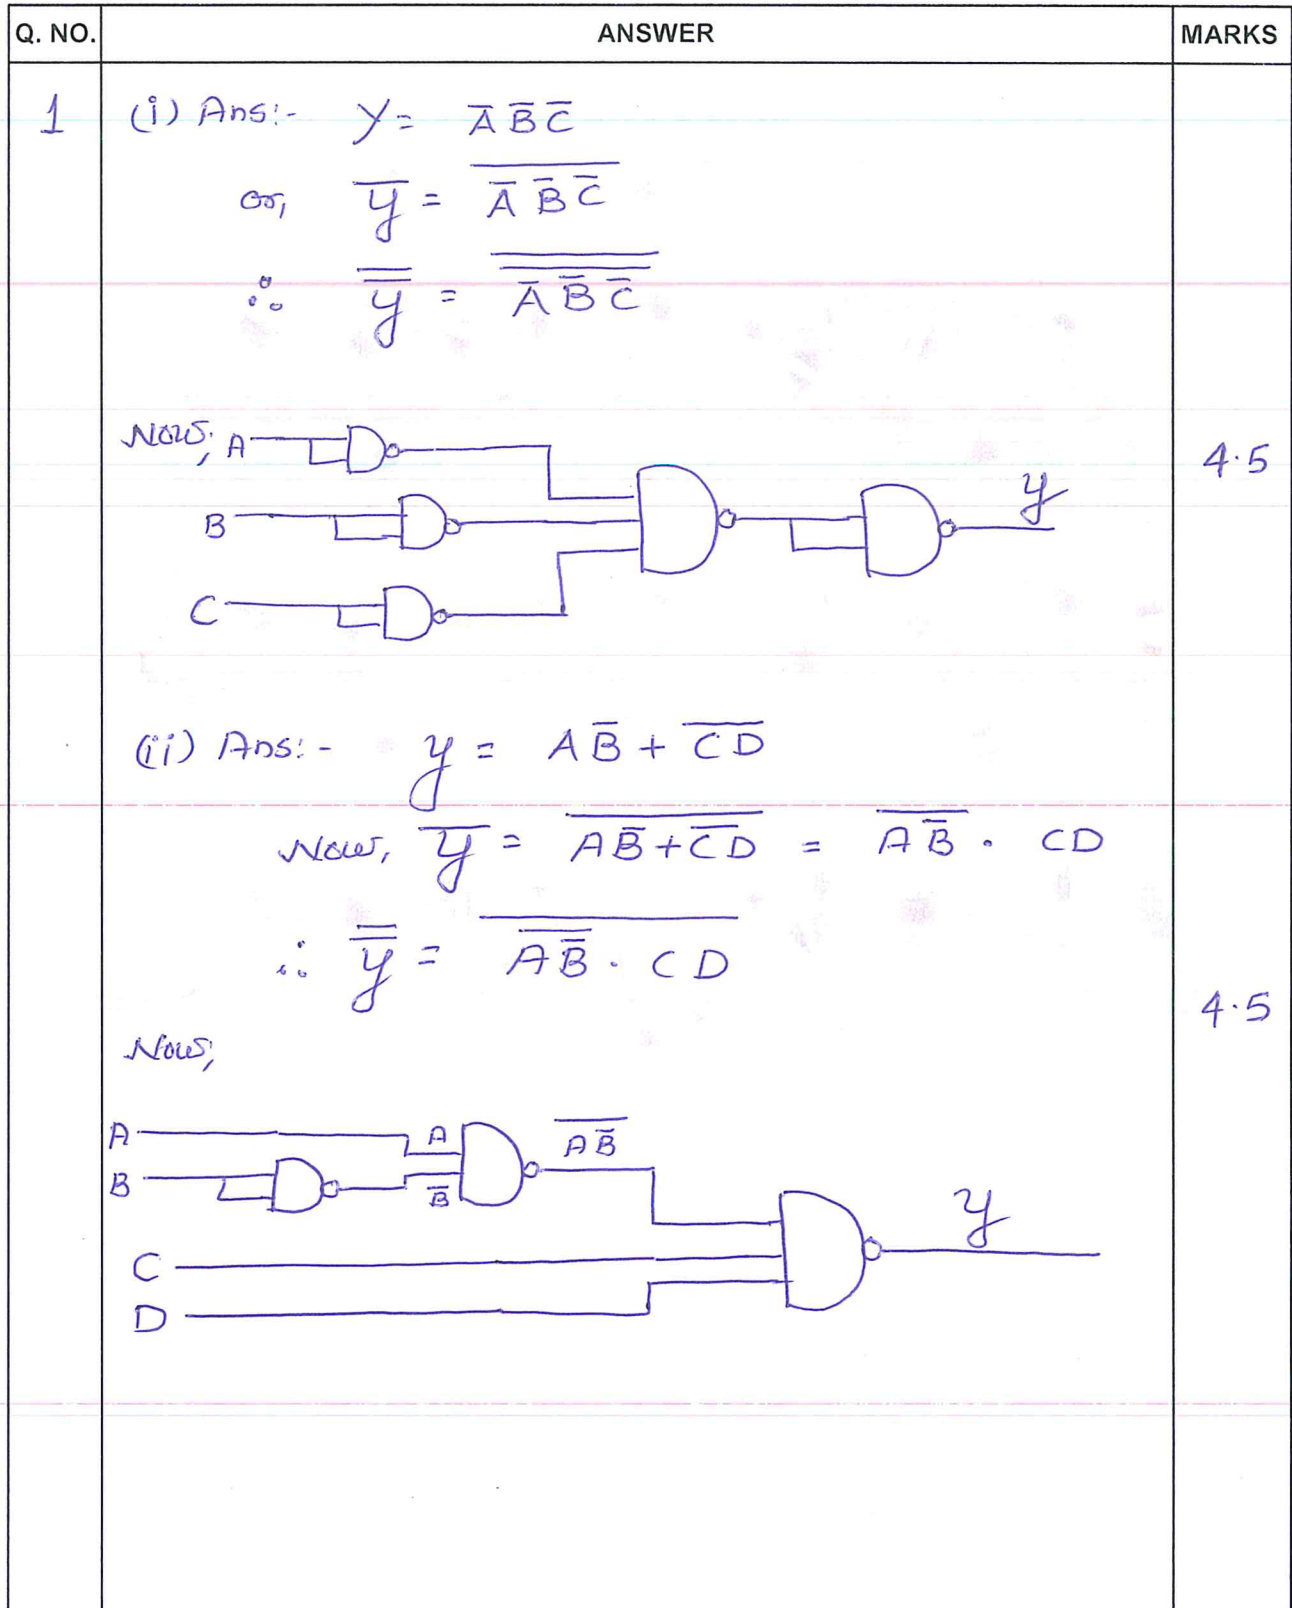 Q. NO. ANSWER MARKS
1 (i) Ans:- Y = A̅ B̅ C̅
or, y̅ = \overline{A̅ B̅ C̅}
∴ \overline{\overline{y}} = \overline{\overline{A̅ B̅ C̅}}
Now, A
4.5
y
B
C
(ii) Ans:- y = A B̅ + \overline{C D}
Now, y̅ = \overline{A B̅ + \overline{C D}} = \overline{A B̅} . C D
∴ \overline{\overline{y}} = \overline{\overline{A B̅} . C D}
4.5
Now,
A A \overline{A B̅}
B B̅
y
C
D